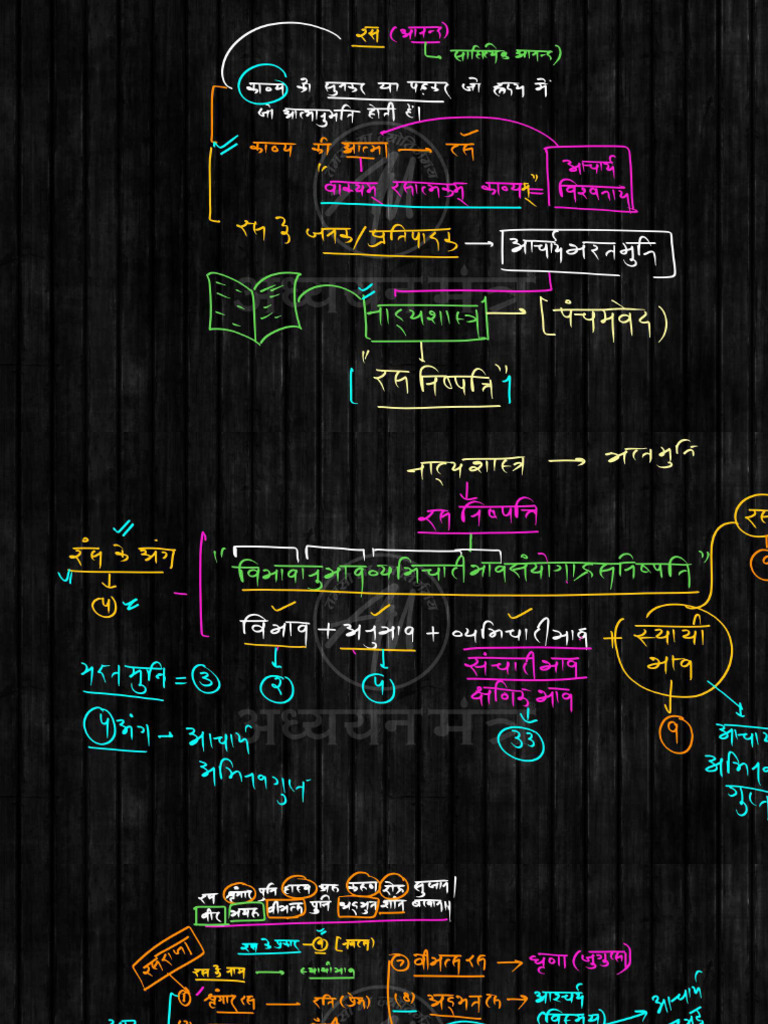 रस (आनन्द)
साहित्यिक आनन्द)
काव्य को सुनकर या पढ़कर जो हृदय में
जो आत्मानुभूति होती है।
काव्य की आत्मा → रस
"वाक्यम् रसात्मकम् काव्यम्" =
आचार्य
विश्वनाथ
रस के जनक/प्रतिपादक → आचार्य भरतमुनि
नाट्यशास्त्र → [पंचमवेद)
"रस निष्पत्ति"
नाट्यशास्त्र → भरतमुनि
रस निष्पत्ति
रस के अंग
(4)
"विभावानुभावव्यभिचारीभावसंयोगाद्रसनिष्पत्ति"
विभाव + अनुभाव + व्यभिचारीभाव + स्थायी भाव
संचारीभाव
क्षणिक भाव
2
4
33
9
भरतमुनि = 3
4 अंग - आचार्य
अभिनवगुप्त
आचार्य
गुप्त
अध्ययन मंत्र
रस श्रृंगार पुनि हास्य अरु करुण रौद्र सुजान।
वीर भयरु वीभत्स पुनि अद्भुत शांत बखान॥
रस के प्रकार - 9
रसराज
रस के नाम → स्थायीभाव
1 श्रृंगार रस → रति (प्रेम)
7 वीभत्स रस → घृणा (जुगुप्सा)
8 अद्भुत रस → आश्चर्य
(विस्मय)
आचार्य